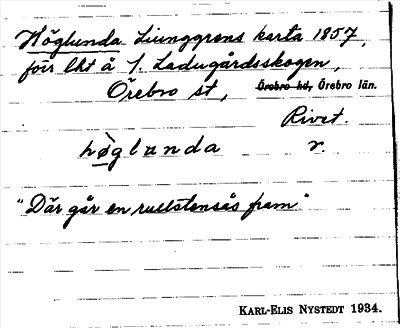 Höglunda Ljunggrens karta 1857,
förr lht å f. Ladugårdsskogen,
Örebro st, Örebro hd, Örebro län.
Rivet.
hö̀glunda r.
"Där går en rullstensås fram"
KARL-ELIS NYSTEDT 1934.